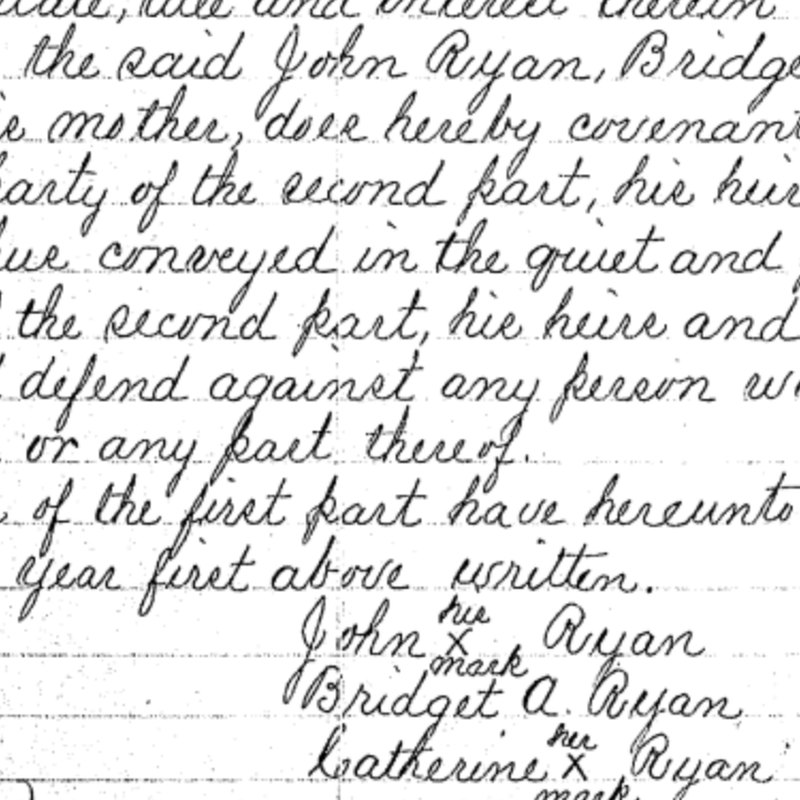 and interest therein
the said John Ryan, Bridge
mother, does hereby covenant
arty of the second part, his heir
conveyed in the quiet and
the second part, his heirs and
defend against any person w
or any part thereof.
of the first part have hereunto
year first above written.
his
John x Ryan
mark
Bridget A. Ryan
her
Catherine x Ryan
mark